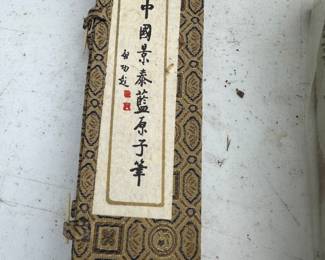 中國景泰藍原子筆
啟功題